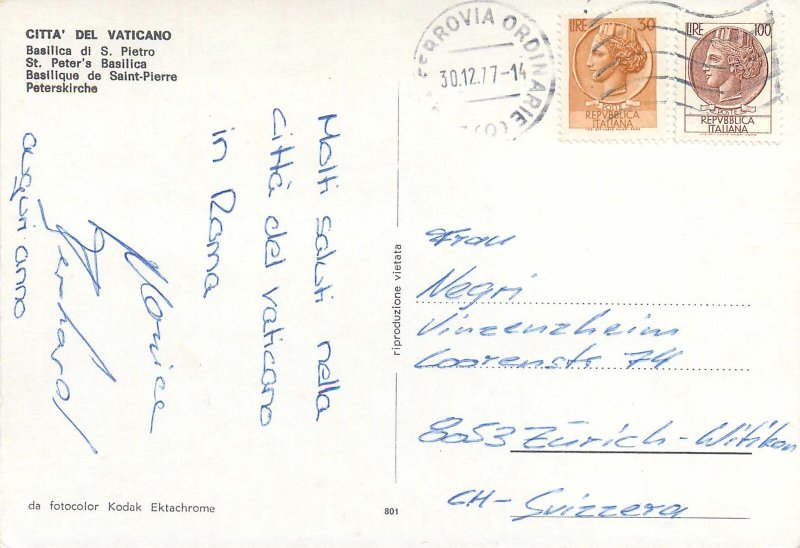 CITTA' DEL VATICANO
Basilica di S. Pietro
St. Peter's Basilica
Basilique de Saint-Pierre
Peterskirche
FERROVIA ORDINARIE
30.12.77-14
LIRE 30
POSTE
REPVBBLICA
ITALIANA
LIRE 100
POSTE
REPVBBLICA
ITALIANA
Molti saluti nella
città del vaticano
in Roma
Monica
auguri anno
riproduzione vietata
Frau
Negri
Vinzenzheim
74
8053 Zürich-Witikon
CH-Svizzera
da fotocolor Kodak Ektachrome
801